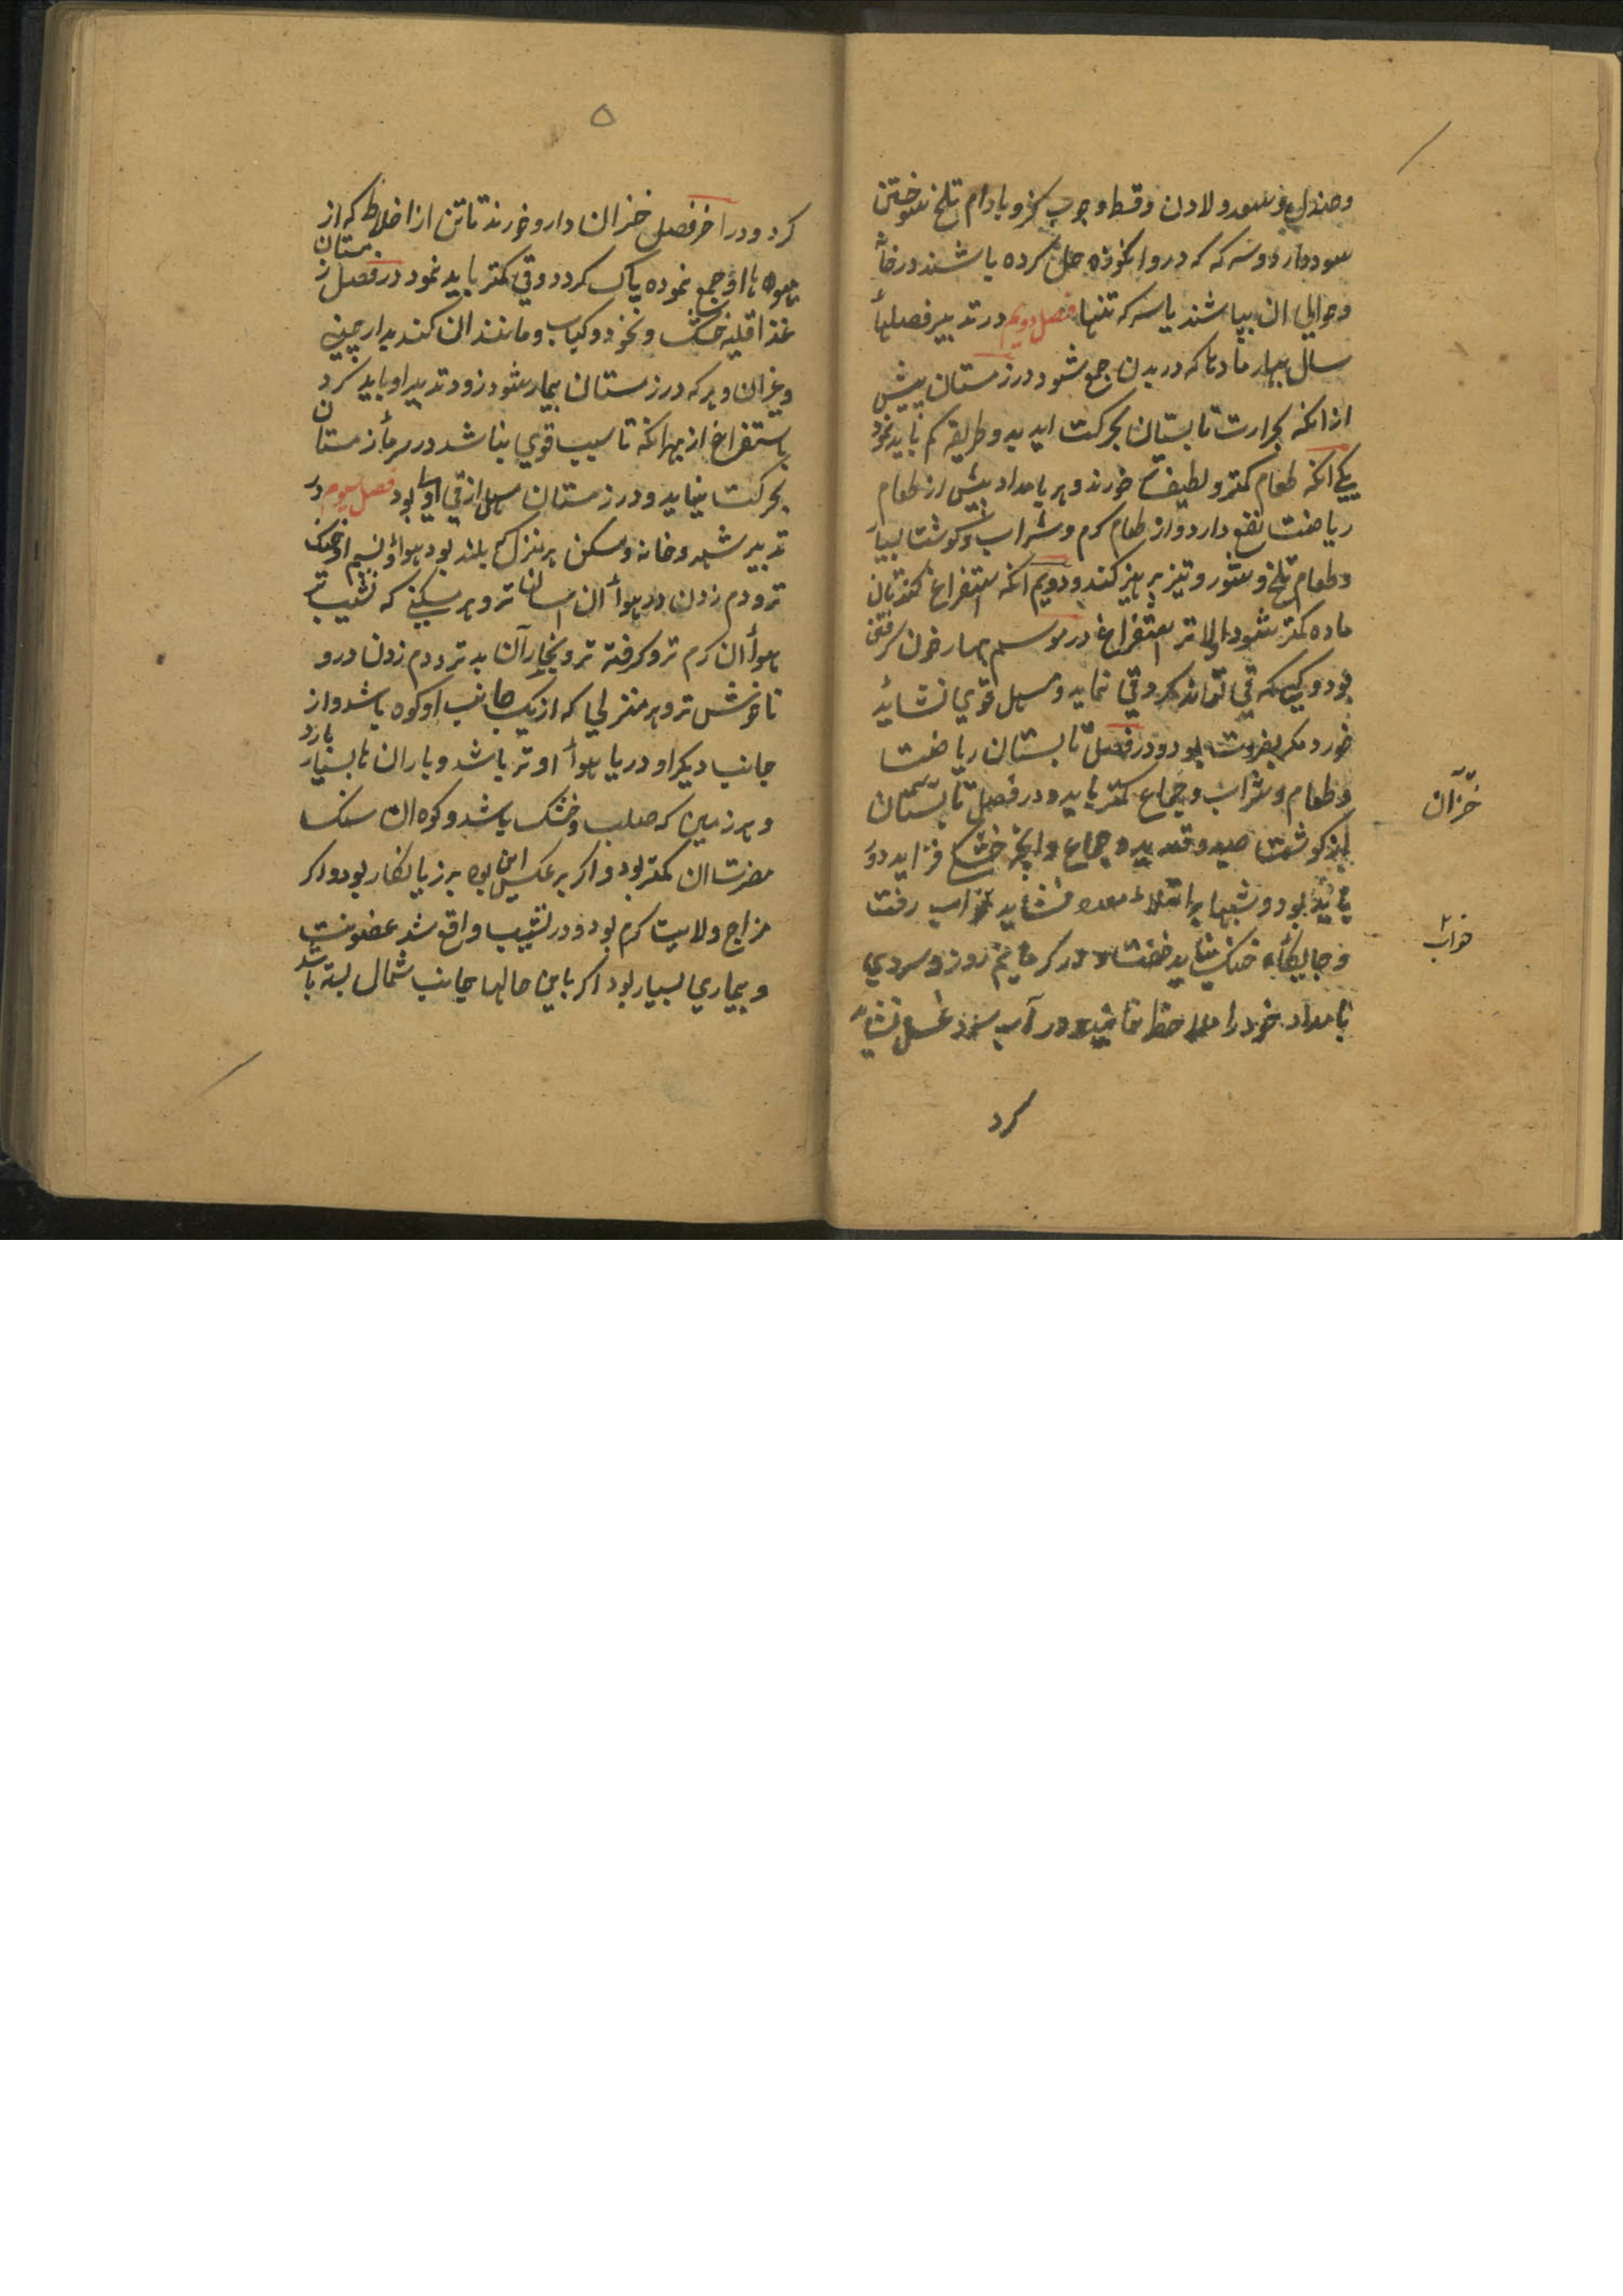 وصندل و سعد و لادن و قسط و چوب گز و بادام تلخ سوختن
سود دارد و سرکه که درو انکوزه حل کرده باشند در خانه
وحوالی ان بپاشند یا سرکه تنها فصل دویم در تدبیر فصلهأ
سال بهار مادتها که در بدن جمع شود در زمستان پیش
از انکه بحرارت تابستان بحرکت اید بدو طریقه کم باید نمود
یکی انکه طعام کمتر و لطیف خورند و هر بامداد پیش از طعام
ریاضت نفع دارد و از طعام کرم و شراب و کوشت بسیار
وطعام تلخ و شور و تیز پرهیز کنند و دویم انکه استفراغ کنند تا ان
ماده کمتر شود اولاتر استفراغ در موسم بهار خون کرفتن
بود و کسی که قی تواند کرد قی نماید و مسهل قوی نشاید
خورد مکر بضرورت بود و در فصل تابستان ریاضت
وطعام و شراب و جماع کمتر باید و در فصل تابستان
از کوشت صید و قدید و جماع و انچه خشکی فزاید دور
باید بود و شبها بر امتلاء معده نشاید بخواب رفت
و جایکاه خنک نباید خفت و در کرماء نیم روز و سردی
بامداد خود را ملاحظه نمایند و در آب سرد غسل نشاید
کرد
خزآن
خواب
۵
کرد و در اخر فصل خزان دارو خورند تا تن از اخلاط که از
میوه ها او جمع نموده پاک کردد و قی کمتر باید نمود در فصل زمستان
غذا قلیه خشک و نخود و کباب و مانند ان کنند بدارچینی
وغیران و هر که در زمستان بیمار شود زود تدبیر او باید کرد
باستفراغ از بهر انکه تا سبب قوی نباشد در سرمأ زمستان
بحرکت نیاید و در زمستان مسهل از قی اولی بود فصل سیوم در
تدبیر شهر و خانه و مسکن هر منزل که بلند بود هوا و نسیم او خنک
تر و دم زدن در هوأ ان اسان تر و هر مسکنی که نشیب تر
هوأ ان کرم تر و کرفته تر و بخار آن بد تر و دم زدن درو
ناخوش تر و هر منزلی که از یک جانب او کوه باشد و از
جانب دیکر او دریا هوأ او تر باشد و باران نا بسیار بارد
وهر زمین که صلب و خشک باشد و کوه ان سنک
مضرت ان کمتر بود و اکر بر عکس این بود پر زیانکار بود و اکر
مزاج ولایت کرم بود و در نشیب واقع شد عفونت
و بیماری بسیار بود اکر با این حالها جانب شمال بسته باشد